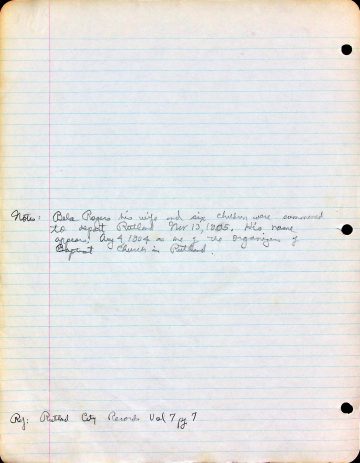 Notes: Bela Rogers his wife and six children were summoned
to depart Rutland Nov 13, 1805. His name
appears Aug 4 1804 as one of the organizers of
Baptist Church in Rutland.
Ref: Rutland City Records Vol 7 pg 7